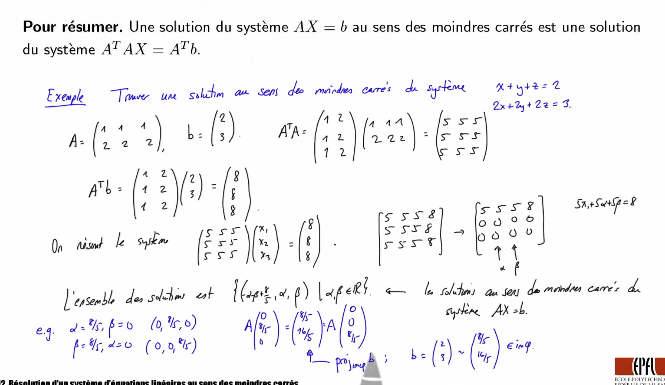 Pour résumer. Une solution du système AX = b au sens des moindres carrés est une solution
du système AᵀAX = Aᵀb.
Exemple Trouver une solution au sens des moindres carrés du système x+y+z=2
2x+2y+2z=3.
A = (1 1 1; 2 2 2), b = (2; 3). AᵀA = (1 2; 1 2; 1 2)(1 1 1; 2 2 2) = (5 5 5; 5 5 5; 5 5 5)
Aᵀb = (1 2; 1 2; 1 2)(2; 3) = (8; 8; 8).
On résout le système (5 5 5; 5 5 5; 5 5 5)(x₁; x₂; x₃) = (8; 8; 8). [5 5 5 8; 5 5 5 8; 5 5 5 8] → [5 5 5 8; 0 0 0 0; 0 0 0 0] 5x₁+5α+5β=8
↑ ↑
α β
L'ensemble des solutions est {(-α-β+8/5, α, β) | α,β∈ℝ}. ← les solutions au sens des moindres carrés du
système AX=b.
e.g. α=8/5, β=0 (0, 8/5, 0) A(0; 8/5; 0) = (8/5; 16/5) = A(0; 0; 8/5)
β=8/5, α=0 (0, 0, 8/5) ↑ b = (2; 3) ~ (8/5; 16/5) ∈ imφ.
EPFL
ÉCOLE POLYTECHNIQUE
2. Résolution d'un système d'équations linéaires au sens des moindres carrés